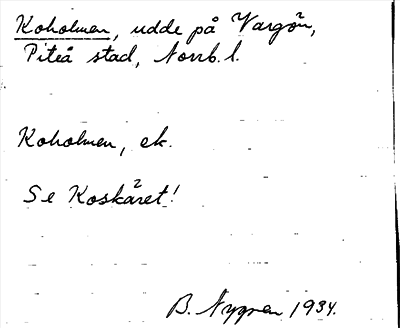 Koholmen, udde på Vargön,
Piteå stad, Norrb. l.
Koholmen, ek.
Se Koskäret!
B. Nygren 1934.